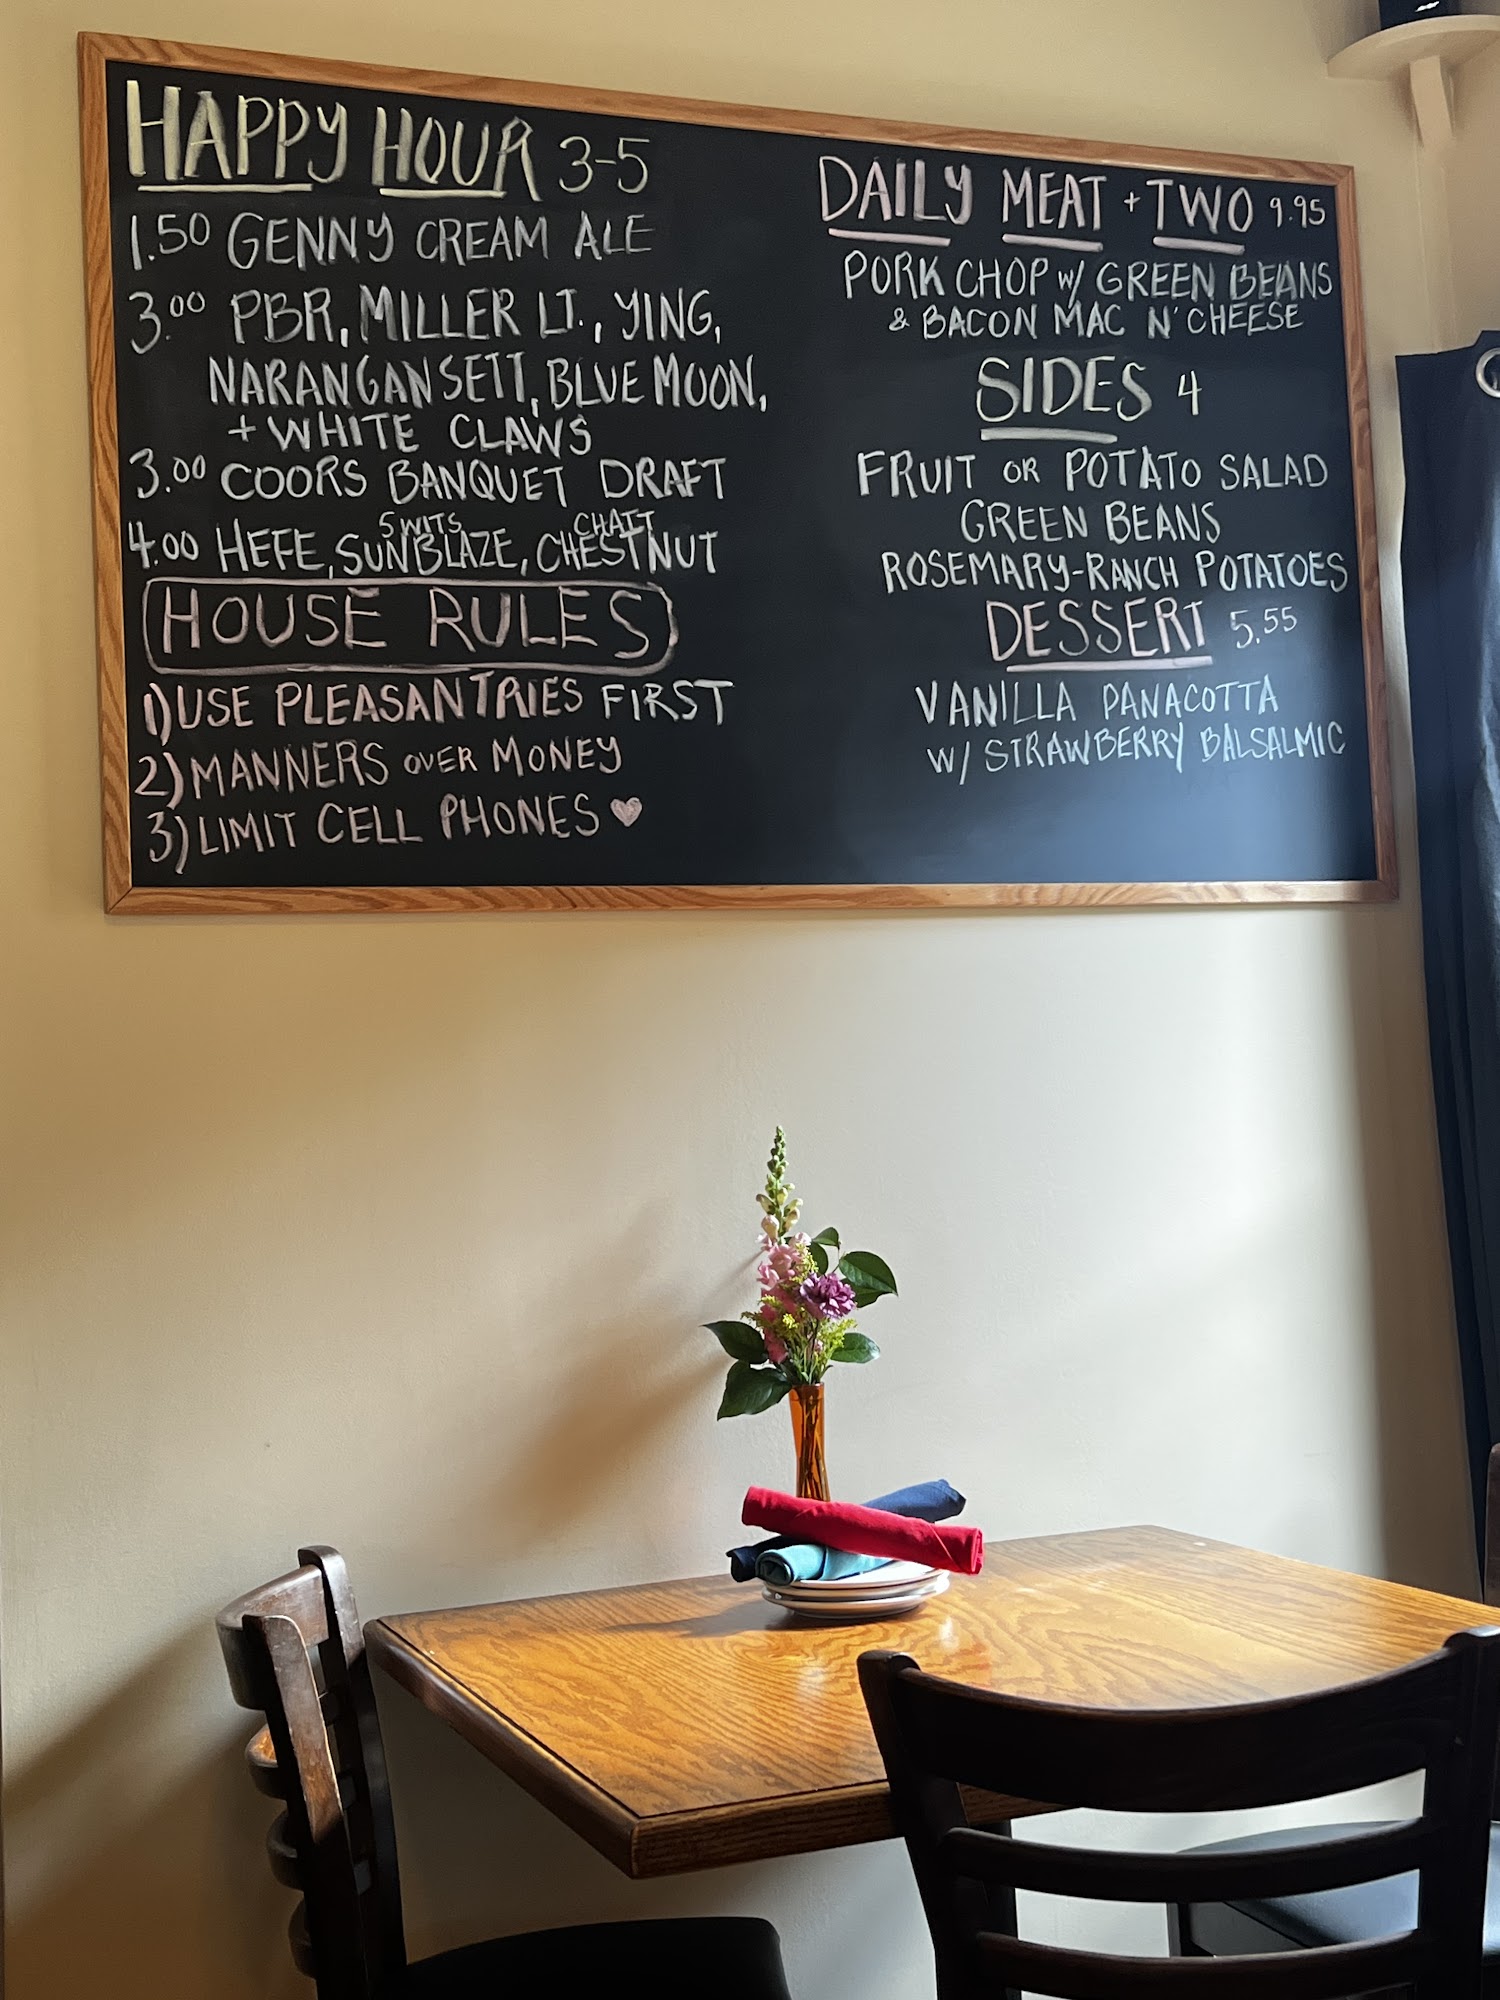 HAPPY HOUR 3-5
1.50 GENNY CREAM ALE
3.00 PBR, MILLER LT., YING,
NARANGANSETT, BLUE MOON,
+ WHITE CLAWS
3.00 COORS BANQUET DRAFT
5 WITS CHATT
4.00 HEFE, SUNBLAZE, CHESTNUT
HOUSE RULES
1) USE PLEASANTRIES FIRST
2) MANNERS OVER MONEY
3) LIMIT CELL PHONES ♥
DAILY MEAT + TWO 9.95
PORK CHOP w/ GREEN BEANS
& BACON MAC N' CHEESE
SIDES 4
FRUIT OR POTATO SALAD
GREEN BEANS
ROSEMARY-RANCH POTATOES
DESSERT 5.55
VANILLA PANACOTTA
W/ STRAWBERRY BALSALMIC